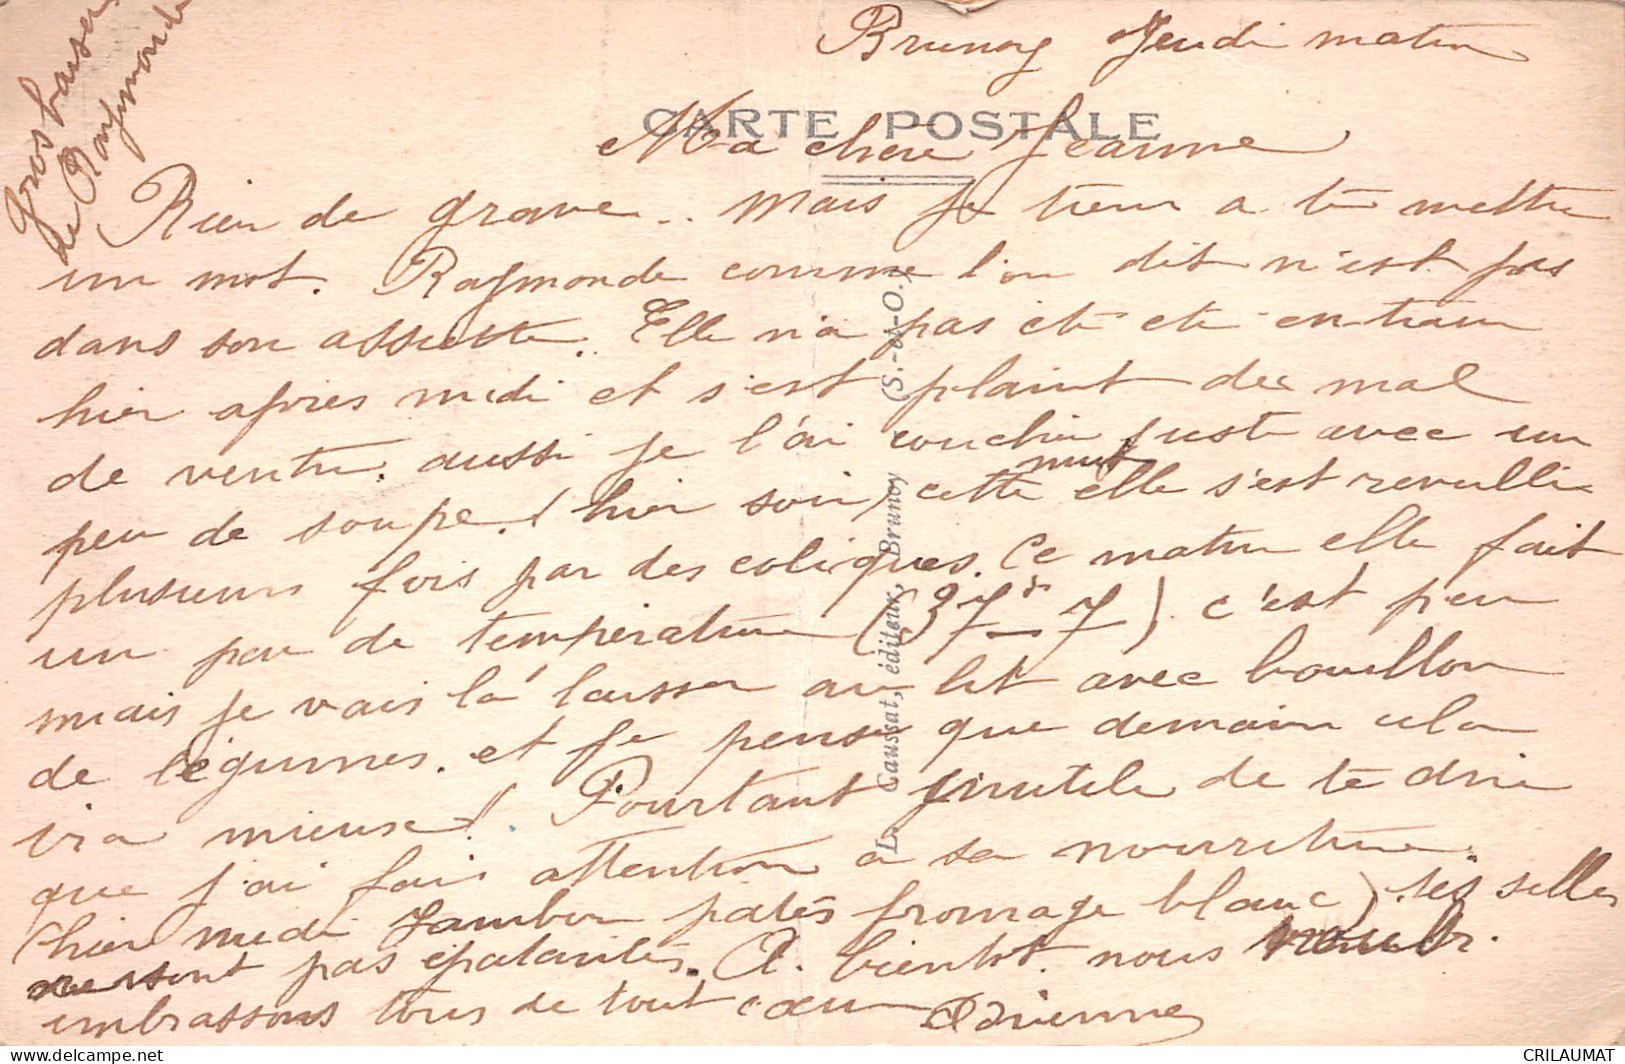 Gros baisers
de Raymonde
Brunoy Jeudi matin
CARTE POSTALE
Ma chère Jeanne
Rien de grave .. mais je tiens a te mettre
un mot. Raymonde comme l'on dit n'est pas
dans son assiette. Elle n'a pas été été en train
hier après midi et s'est plaint de mal
de ventre. aussi je l'ai couchée juste avec un
peu de soupe! hier soir, cette nuit elle s'est reveillée
plusieurs fois par des coliques. Ce matin elle fait
un peu de température (37° 7) c'est peu
mais je vais la laisser au lit avec bouillon
de légumes. et je pense que demain cela
ira mieux! Pourtant inutile de te dire
que j'ai fais attention a sa nourriture.
(hier midi jambon patés fromage blanc) ses selles
ne sont pas épatantes. A bientot. nous
embrassons tous de tout cœur
L. Caussat, éditeur, Brunoy (S.-et-O.)
CRILAUMAT